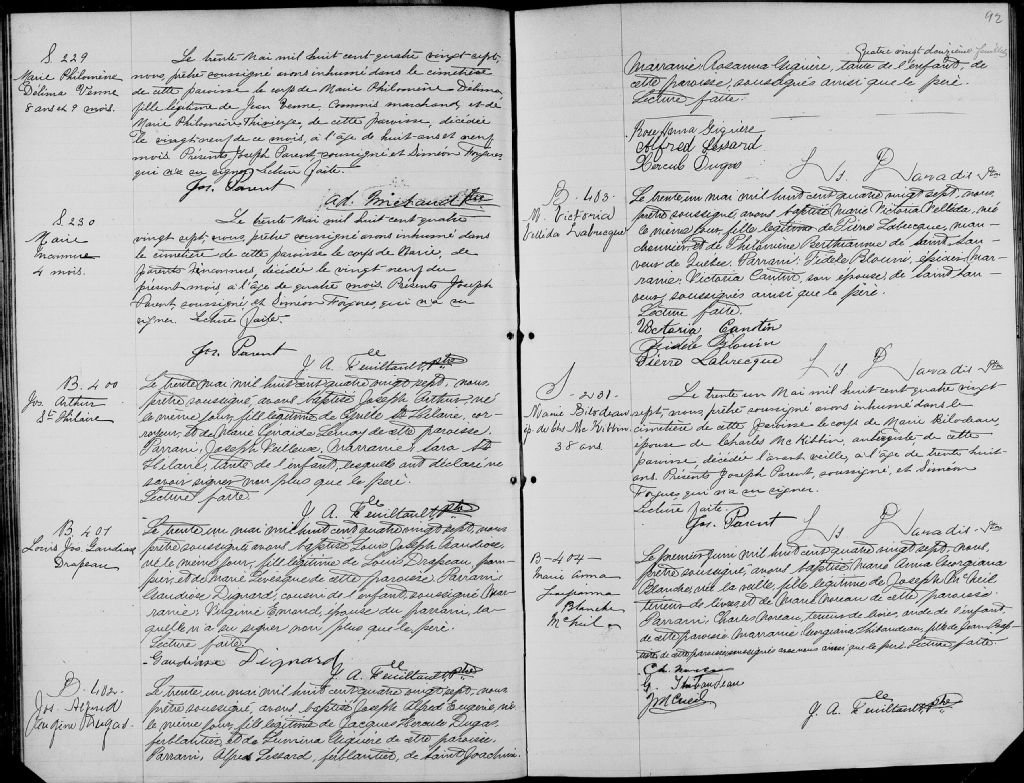 S. 229
Marie Philomène
Délima Venne
8 ans et 9 mois.
Le trente Mai mil huit cent quatre vingt sept,
nous, prêtre soussigné avons inhumé dans le cimetière
de cette paroisse le corps de Marie Philomène Délima
fille légitime de Jean Venne, Commis marchand, et de
Marie Philomène Thivierge, de cette paroisse, décédée
le vingt neuf de ce mois, à l'âge de huit ans et neuf
mois. Présents Joseph Parent soussigné et Siméon
qui n'a su signer. Lecture faite.
Jos. Parent
Ad. Michaud Ptre
S. 230
Marie
inconnue
4 mois.
Le trente Mai mil huit cent quatre
vingt sept, nous, prêtre soussigné avons inhumé dans
le cimetière de cette paroisse le corps de Marie, de
parents inconnus, décédée le vingt neuf du
présent mois à l'âge de quatre mois. Présents Joseph
Parent, soussigné, et Siméon qui n'a su
signer. Lecture faite.
Jos. Parent
J. A. Feuiltault, Ptre
B. 400
Jos. Arthur
St Hilaire
Le trente mai mil huit cent quatre vingt sept, nous,
prêtre soussigné, avons baptisé Joseph Arthur, né
le même jour, fils légitime de Cyrille St Hilaire, cor-
royeur, et de Marie Lemay de cette paroisse.
Parrain, Joseph Veilleux, marraine, Sara St
Hilaire, tante de l'enfant, lesquels ont déclaré ne
savoir signer non plus que le père.
Lecture faite.
J. A. Feuiltault, Ptre
B. 401
Louis Jos. Gaudiose
Drapeau
Le trente un mai mil huit cent quatre vingt sept, nous
prêtre soussigné avons baptisé Louis Joseph Gaudiose,
né le même jour, fils légitime de Louis Drapeau, pom-
pier, et de Marie Levesque de cette paroisse. Parrain
Gaudiose Dignard, cousin de l'enfant, soussigné, Mar-
raine Virginie Emond, épouse du parrain, la-
quelle n'a su signer non plus que le père.
Lecture faite.
Gaudiose Dignard
J. A. Feuiltault, Ptre
B. 402
Jos. Alfred
Eugène Dugas
Le trente un mai mil huit cent quatre vingt sept, nous
prêtre soussigné, avons baptisé Joseph Alfred Eugène, né
le même jour, fils légitime de Jacques Hercule Dugas,
ferblantier et de Lumina Giguère de cette paroisse.
Parrain, Alfred Lessard, ferblantier, de Saint Joachim.
92
Quatre vingt douzième feuillet
Marraine Rosanna Giguère, tante de l'enfant, de
cette paroisse, soussignés ainsi que le père.
Lecture faite.
Rose Anna Giguère
Alfred Lessard
Hercule Dugas
Ls D Paradis Ptre
B. 403
M. Victoria
Vellida Labrecque
Le trente un mai mil huit cent quatre vingt sept, nous,
prêtre soussigné avons baptisé Marie Victoria Vellida, née
le même jour, fille légitime de Pierre Labrecque,
et de Philomène Berthiaume de Saint Sau-
veur de Québec. Parrain, Fidèle Blouin, épicier, Mar-
raine, Victoria Cantin, son épouse, de Saint Sau-
veur, soussignés ainsi que le père.
Lecture faite.
Victoria Cantin
Fidèle Blouin
Pierre Labrecque
Ls D Paradis Ptre
S. 231
Marie Bilodeau
ép. de Chs Mc Kibbin
38 ans.
Le trente un Mai mil huit cent quatre vingt
sept, nous, prêtre soussigné avons inhumé dans le
cimetière de cette paroisse le corps de Marie Bilodeau,
épouse de Charles Mc Kibbin, de cette
paroisse, décédée l'avant veille, à l'âge de trente huit
ans. Présents Joseph Parent, soussigné, et Siméon
qui n'a su signer.
Lecture faite.
Jos. Parent
Ls D Paradis Ptre
B-404-
Marie Anna
Blanche
McNeil
Le premier Juin mil huit cent quatre vingt sept, nous,
prêtre soussigné, avons baptisé Marie Anna Georgiana
Blanche, née la veille, fille légitime de Joseph McNeil
teneur de livres, et de Marie Moreau de cette paroisse.
Parrain, Charles Moreau, teneur de livres, oncle de l'enfant,
de cette paroisse. Marraine Georgiana Thibaudeau, fille de Jean Bap-
tiste, de cette paroisse, soussignés avec nous ainsi que le père. Lecture faite
Ch. Moreau
G. Thibaudeau
J McNeil
J. A. Feuiltault, Ptre